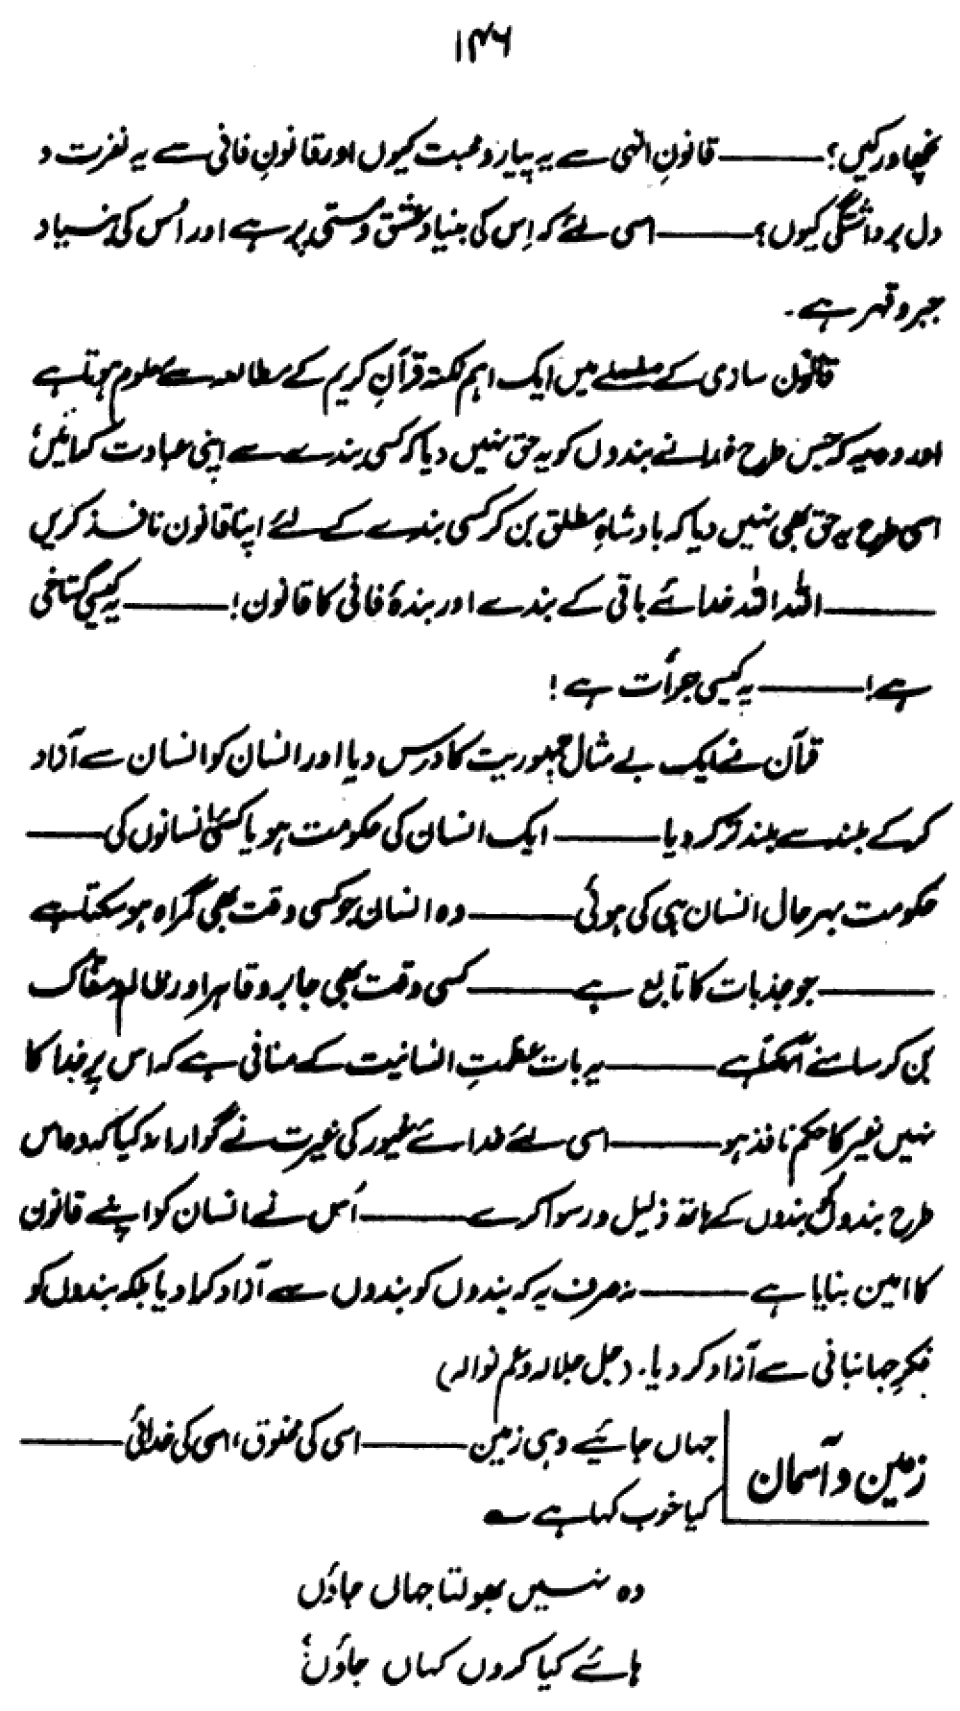 ۱۴۶
نچھاور کیں؟ ——— قانونِ الٰہی سے یہ پیار و محبت کیوں اور قانونِ فانی سے یہ نفرت و
دل برداشتگی کیوں؟ ——— اسی لئے کہ اِس کی بنیاد عشق و مستی پر ہے اور اُس کی بنیاد
جبر و قہر ہے۔
قانون سازی کے سلسلے میں ایک اہم نکتہ قرآنِ کریم کے مطالعہ سے معلوم ہوتا ہے
اور وہ یہ کہ جس طرح خدا نے بندوں کو یہ حق نہیں دیا کہ کسی بندے سے اپنی عبادت کرائیں؛
اسی طرح یہ حق بھی نہیں دیا کہ بادشاہِ مطلق بن کر کسی بندے کے لئے اپنا قانون نافذ کریں
——— اللہ اللہ خدائے باقی کے بندے اور بندۂ فانی کا قانون! ——— یہ کیسی گستاخی
ہے! ——— یہ کیسی جرأت ہے!
قرآن نے ایک بے مثال جمہوریت کا درس دیا اور انسان کو انسان سے آزاد
کر کے بلند سے بلند تر کر دیا ——— ایک انسان کی حکومت ہو یا کئی انسانوں کی ———
حکومت بہرحال انسان ہی کی ہوئی ——— وہ انسان جو کسی وقت بھی گمراہ ہو سکتا ہے
——— جو جذبات کا تابع ہے ——— کسی وقت بھی جابر و قاہر اور ظالم و سفاک
بن کر سامنے آسکتا ہے ——— یہ بات عظمتِ انسانیت کے منافی ہے کہ اس پر خدا کا
نہیں غیر کا حکم نافذ ہو ——— اسی لئے خدائے غیور کی غیرت نے گوارا نہ کیا کہ وہ اس
طرح بندوں کو بندوں کے ہاتھ ذلیل و رسوا کرے ——— اُس نے انسان کو اپنے قانون
کا امین بنایا ہے ——— نہ صرف یہ کہ بندوں کو بندوں سے آزاد کرا دیا بلکہ بندوں کو
فکرِ جہانبانی سے آزاد کر دیا۔ (جل جلالہ وعم نوالہ)
زمین و آسمان
جہاں جائیے وہی زمین ——— اسی کی مخلوق، اسی کی خدائی ———
کیا خوب کہا ہے ؎
وہ نہیں بھولتا جہاں جاؤں
ہائے کیا کروں کہاں جاؤں؟